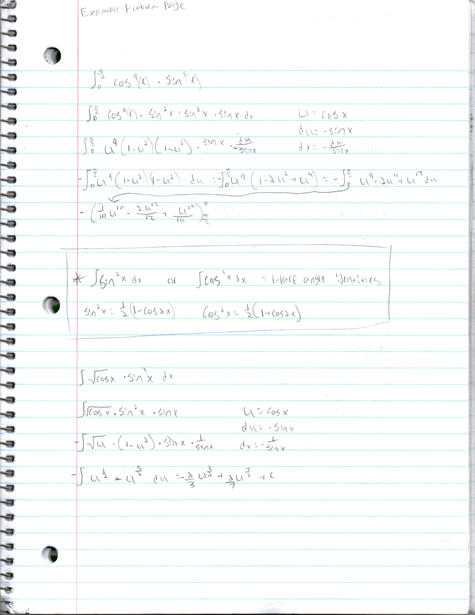 Example Problem Page
∫₀^(π/2) cos⁹(x) · sin⁵(x)
∫₀^(π/2) cos⁹(x) · sin²x · sin²x · sinx dx
u = cosx
du = -sinx
∫₀^(π/2) u⁹(1-u²)(1-u²) · sinx · du/-sinx
dx = -du/sinx
-∫₀^(π/2) u⁹(1-u²)(1-u²) du = -∫₀^(π/2) u⁹(1-2u²+u⁴) = -∫₀^(π/2) u⁹-2u¹¹+u¹³ du
* ∫sin²x dx or ∫cos²x dx = Half angle identities
sin²x = 1/2(1-cos2x) cos²x = 1/2(1+cos2x)
∫√cosx · sin³x dx
∫√cosx · sin²x · sinx
u = cosx
du = -sinx
-∫√u · (1-u²) · sinx · 1/sinx
-∫u^(1/2) - u^(5/2) du = -2/3 u^(3/2) + 2/7 u^(7/2) + c